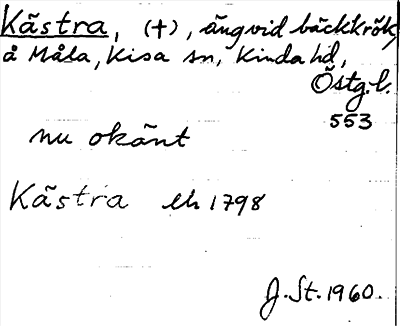 Kästra, (+), äng vid bäckkrök,
å Måla, Kisa sn, Kinda hd,
Östg.l.
553
nu okänt
Kästra lh 1798
J. St. 1960.